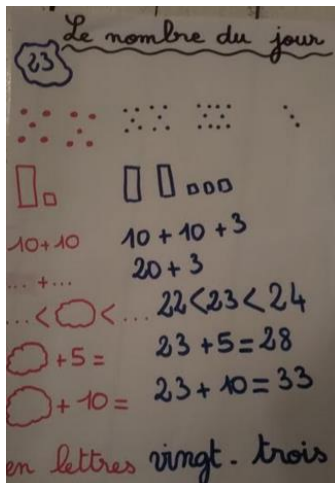 Le nombre du jour
23
10+10 10 + 10 + 3
... + ... 20 + 3
... < < ... 22 < 23 < 24
+ 5 = 23 + 5 = 28
+ 10 = 23 + 10 = 33
en lettres vingt - trois